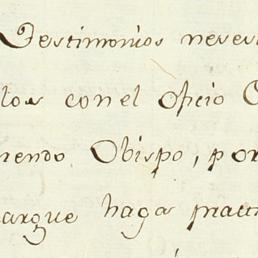 Testimonios neces
los con el oficio
rendo Obispo, por
cargue haga pract